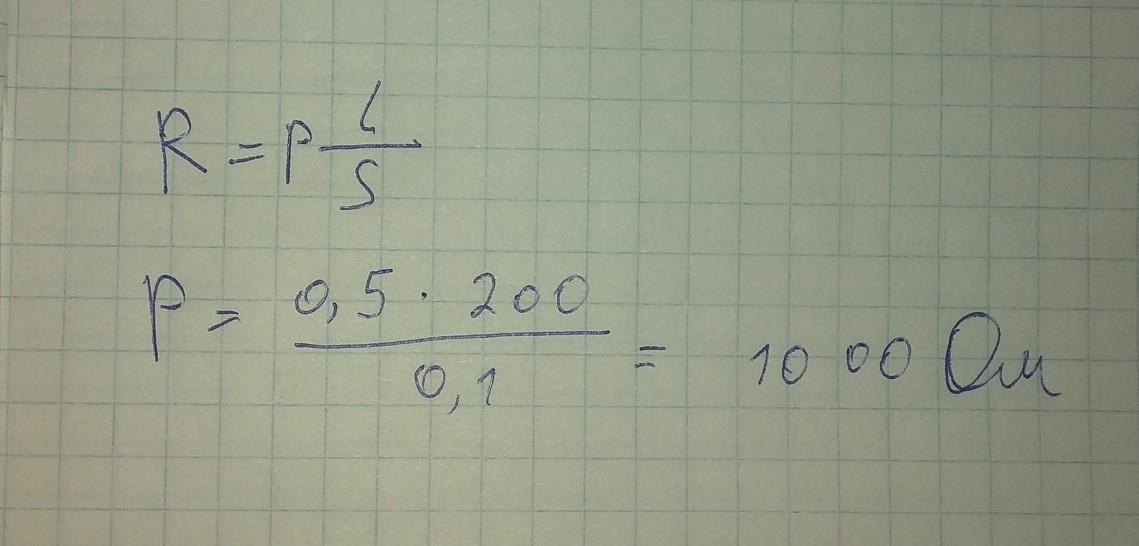 R = p l/S
P = 0,5 · 200 / 0,1 = 1000 Ом